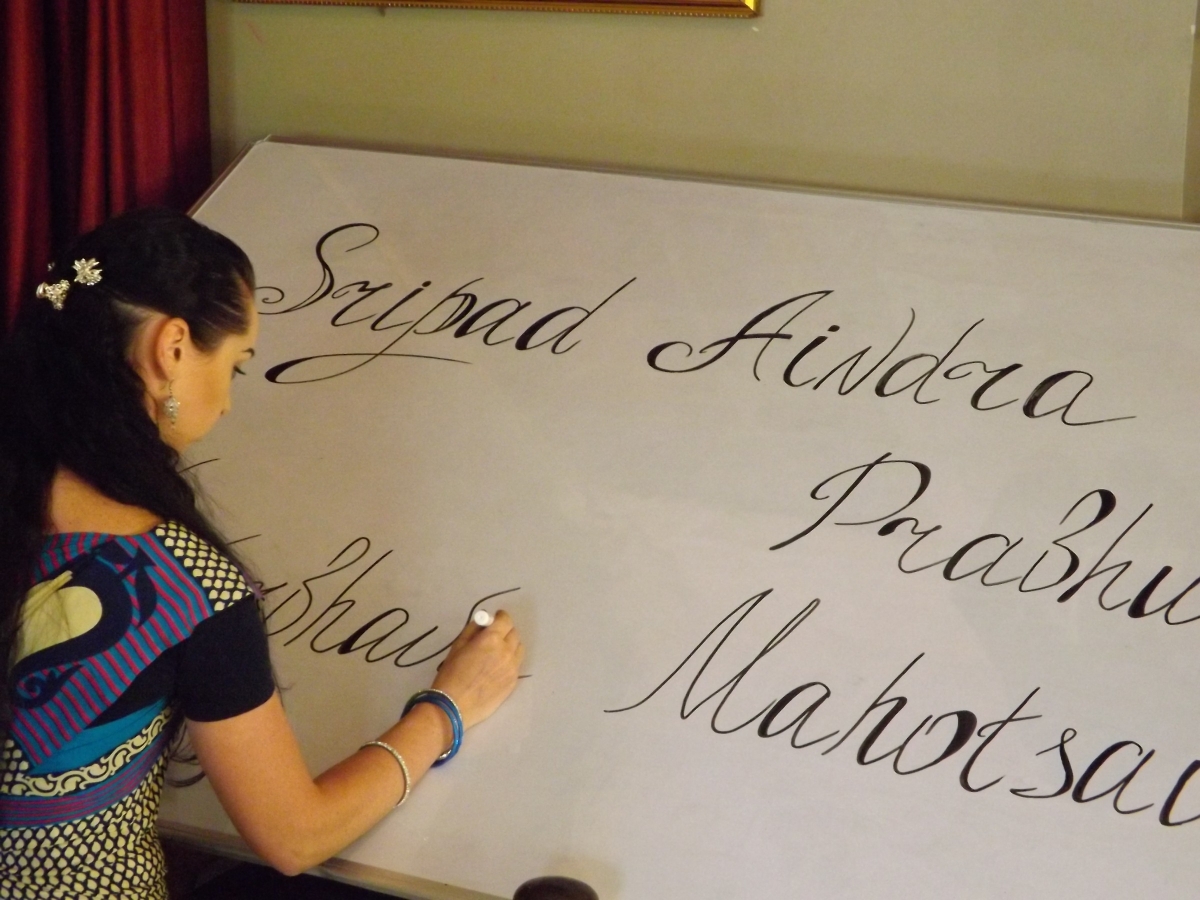 Sripad Aindra
Prabhu
Mahotsav